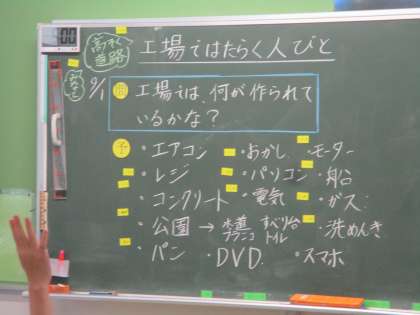 00
高そく道路
工場ではたらく人びと
みなと
9/1
問
工場では、何が作られて
いるかな？
予
・エアコン ・おかし ・モーター
・レジ ・パソコン ・船
・コンクリート ・電気 ・ガス
・公園 → 水道 すべり台
ブランコ トイレ ・洗めんき
・パン ・DVD ・スマホ